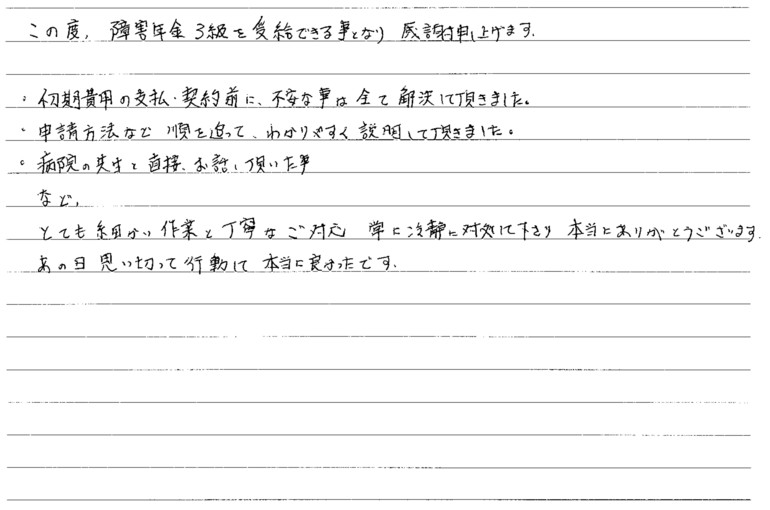 この度, 障害年金 3級を受給できる事となり 感謝申し上げます.
・初期費用の支払・契約前に、不安な事は全て解決して頂きました。
・申請方法など 順を追って、わかりやすく説明して頂きました。
・病院の先生と直接、お話し頂いた事
など,
とても細かい作業と丁寧なご対応 常に冷静に対処して下さり 本当にありがとうございます.
あの日 思い切って行動して 本当に良かったです.